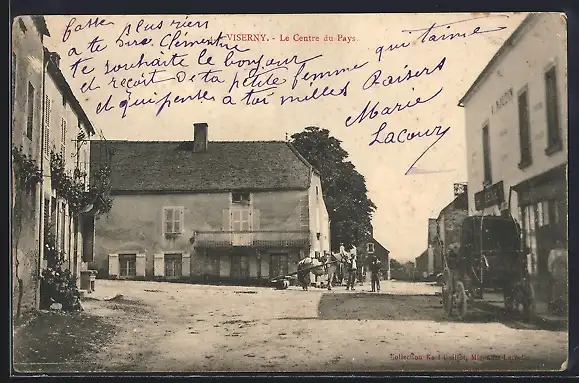 fatte plus rien
a te dire Clémentine
te souhaite le bonjour
et reçoit de ta petite femme qui t'aime
et qui pense a toi milles Baisers
Marie
Lacour
VISERNY. - Le Centre du Pays.
Collection